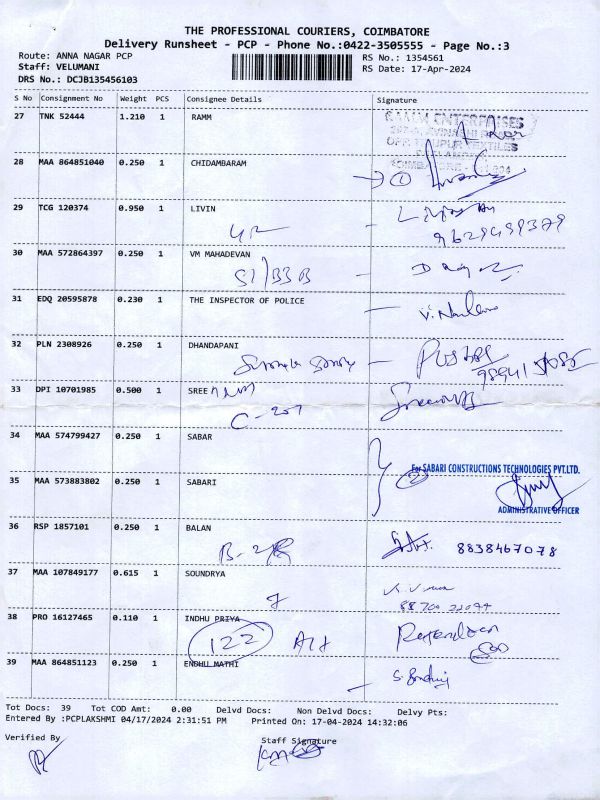 THE PROFESSIONAL COURIERS, COIMBATORE
Delivery Runsheet - PCP - Phone No.:0422-3505555 - Page No.:3
Route: ANNA NAGAR PCP RS No.: 1354561
Staff: VELUMANI RS Date: 17-Apr-2024
DRS No.: DCJB135456103
S No Consignment No Weight PCS Consignee Details Signature
27 TNK 52444 1.210 1 RAMM
SAMM ENTERPRISES
28 MAA 864851040 0.250 1 CHIDAMBARAM
1
29 TCG 120374 0.950 1 LIVIN
9629499379
30 MAA 572864397 0.250 1 VM MAHADEVAN
S1/B3B
31 EDQ 20595878 0.230 1 THE INSPECTOR OF POLICE
32 PLN 2308926 0.250 1 DHANDAPANI
33 DPI 10701985 0.500 1 SREE
C-207
34 MAA 574799427 0.250 1 SABAR
For SABARI CONSTRUCTIONS TECHNOLOGIES PVT.LTD.
35 MAA 573883802 0.250 1 SABARI
2
ADMINISTRATIVE OFFICER
36 RSP 1857101 0.250 1 BALAN
8838467078
37 MAA 107849177 0.615 1 SOUNDRYA
38 PRO 16127465 0.110 1 INDHU PRIYA
122
39 MAA 864851123 0.250 1 ENDHU MATHI
Tot Docs: 39 Tot COD Amt: 0.00 Delvd Docs: Non Delvd Docs: Delvy Pts:
Entered By :PCPLAKSHMI 04/17/2024 2:31:51 PM Printed On: 17-04-2024 14:32:06
Verified By Staff Signature